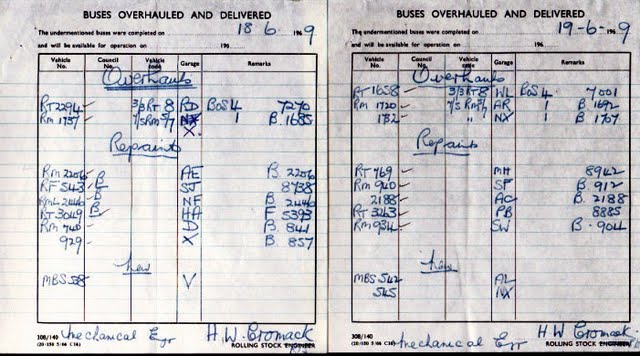 BUSES OVERHAULED AND DELIVERED
The undermentioned buses were completed on 18-6- 1969
and will be available for operation on 196
Vehicle No. Council No. Vehicle code Garage Remarks
Overhauls
RT 2294 3/3 RT 8 RD BOS 4 7270
RM 1737 7/5 RM 5/7 NX 1 B. 1685
X.
Repaints
RM 2206 AE B. 2206
RF 543 B SJ 8738
RML 2446 B NF B 2446
RT 3049 B HA F 5393
RM 740 D B. 841
929 X B. 857
New
MBS 538 V
308/140
Mechanical Egr H.W. Cromack
ROLLING STOCK ENGINEER
BUSES OVERHAULED AND DELIVERED
The undermentioned buses were completed on 19-6- 1969
and will be available for operation on 196
Vehicle No. Council No. Vehicle code Garage Remarks
Overhauls
RT 1658 3/3 RT 8 WL BOS 4. 7001
RM 1720 7/5 RM 5/7 AR 1 B. 1692
1732 " NX 1 B 1707
Repaints
RT 769 MH 8942
RM 940 SF B. 912
2188 AC B. 2188
RT 3463 PB 8885
RM 934 SW B. 904
New
MBS 542 AL
545 NX
308/140
Mechanical Egr H W Cromack
ROLLING STOCK ENGINEER